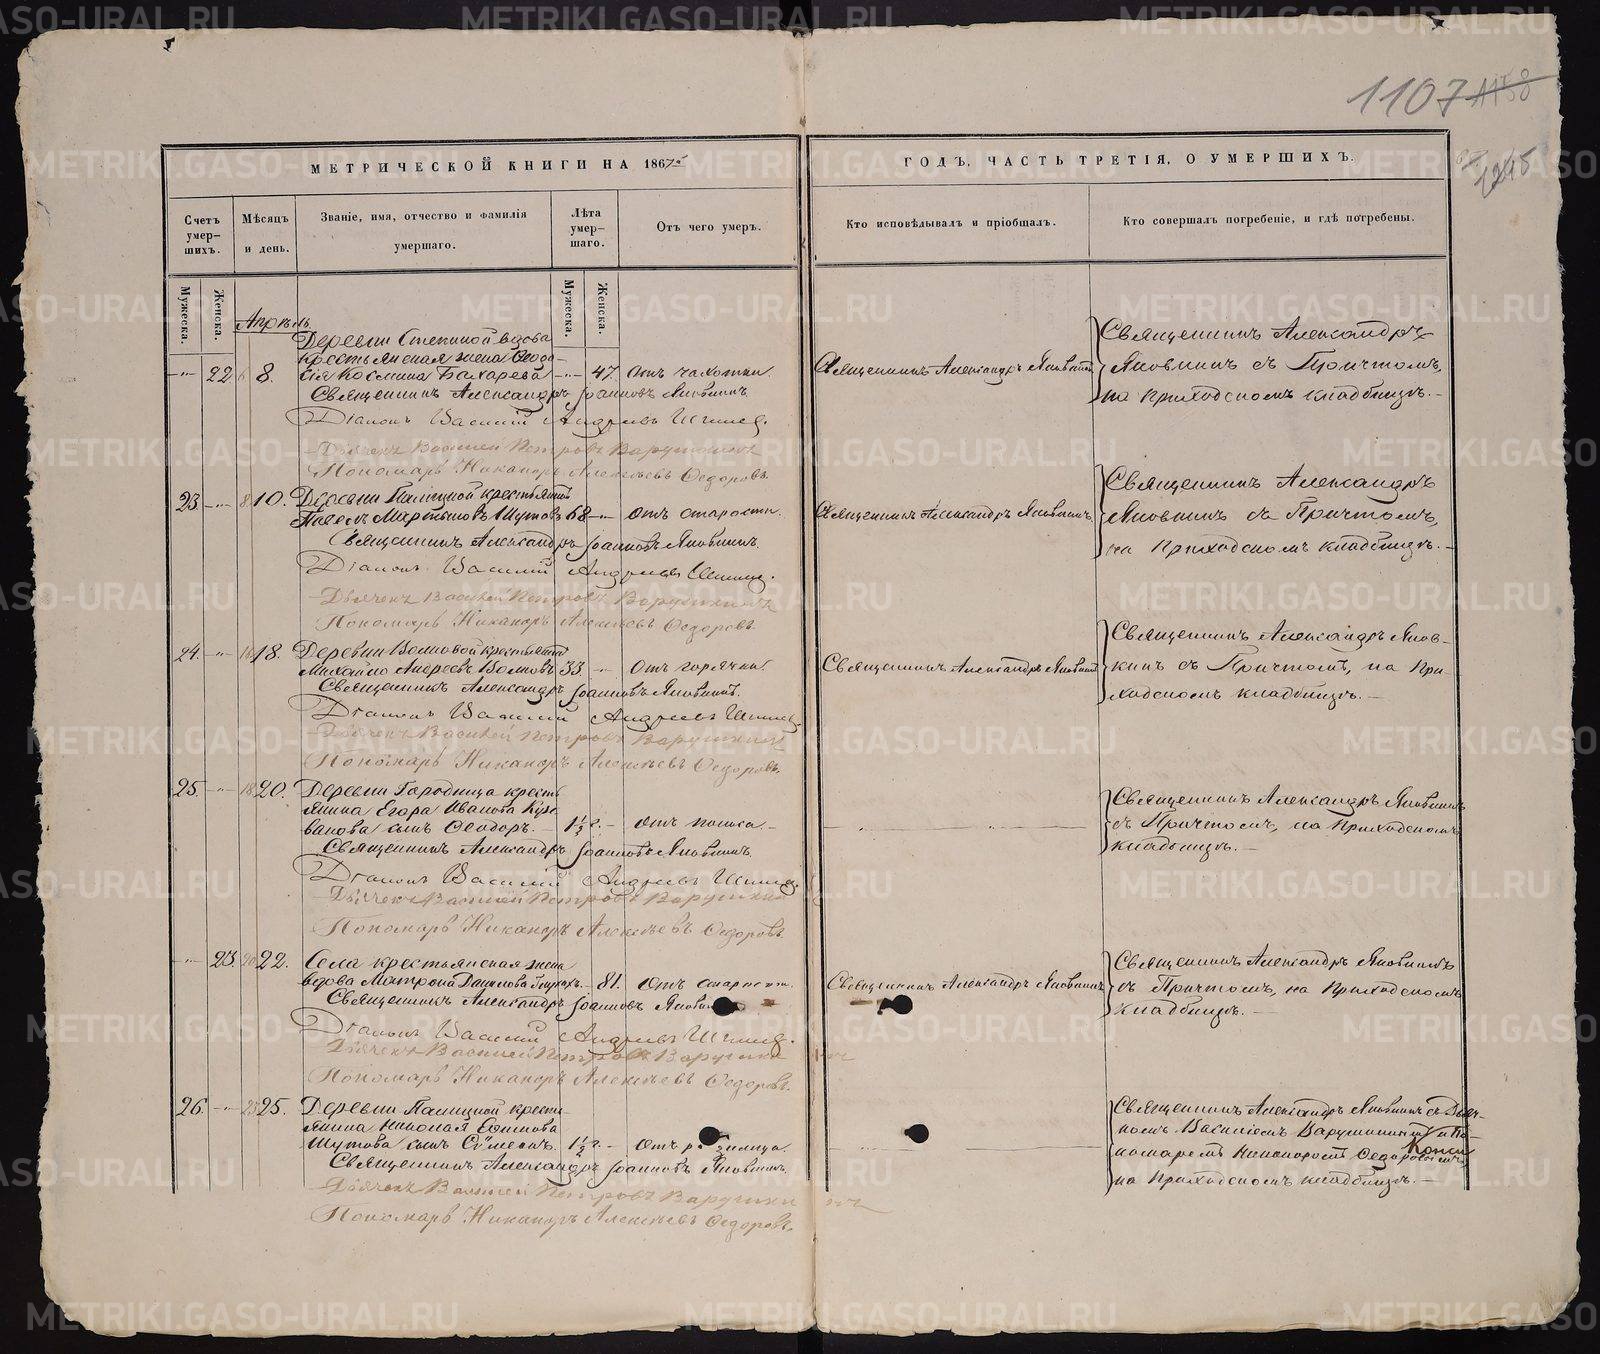 1107 1158
1245
МЕТРИЧЕСКОЙ КНИГИ НА 1867й
ГОДЪ, ЧАСТЬ ТРЕТІЯ, О УМЕРШИХЪ.
Счетъ умер-шихъ.
Мѣсяцъ и день.
Званіе, имя, отчество и фамилія умершаго.
Лѣта умер-шаго.
Отъ чего умеръ.
Кто исповѣдывалъ и пріобщалъ.
Кто совершалъ погребеніе, и гдѣ погребены.
Мужеска.
Женска.
Мужеска.
Женска.
Апрѣль
Деревни вдова
крестьянская жена Ѳеодо-
22 6 8. сія Космина Бахарева 47. отъ чахотки
Священникъ Александръ Іоанновъ Яновкинъ
Діаконъ Василій Андреевъ
Дьячекъ Василій Петровъ Варушкинъ
Пономарь Никаноръ Алексѣевъ Ѳедоровъ.
Священникъ Александръ Яновкинъ
Священникъ Александръ
Яновкинъ съ Причтомъ,
на Приходскомъ кладбищѣ.
23. 8 10. Деревни Палицной крестьянинъ
Павелъ Мартыновъ Шутовъ 68 отъ старости.
Священникъ Александръ Іоанновъ Яновкинъ.
Діаконъ Василій Андреевъ
Дьячекъ Василій Петровъ Варушкинъ
Пономарь Никаноръ Алексѣевъ Ѳедоровъ
Священникъ Александръ Яновкинъ.
Священникъ Александръ
Яновкинъ съ Причтомъ,
на Приходскомъ кладбищѣ.
24. 18. Деревни Волковой крестьянинъ
Михайло Андреевъ Волковъ 33 отъ горячки
Священникъ Александръ Іоанновъ Яновкинъ.
Діаконъ Василій Андреевъ
Дьячекъ Василій Петровъ Варушкинъ
Пономарь Никаноръ Алексѣевъ Ѳедоровъ.
Священникъ Александръ Яновкинъ
Священникъ Александръ Янов-
кинъ съ Причтомъ, на При
ходскомъ кладбищѣ.
25. 18 20. Деревни Городища кресть
янина Егора Иванова
сынъ Ѳеодоръ. 1½ г. отъ поноса.
Священникъ Александръ Іоанновъ Яновкинъ.
Діаконъ Василій Андреевъ
Дьячекъ Василій Петровъ Варушкинъ
Пономарь Никаноръ Алексѣевъ Ѳедоровъ
Священникъ Александръ Яновкинъ
съ Причтомъ, на Приходскомъ
кладбищѣ.
23. 20 22. Села крестьянская жена
вдова Матрона Данилова 81. отъ старости.
Священникъ Александръ Іоанновъ
Діаконъ Василій Андреевъ
Дьячекъ Василій Петровъ Варушкинъ
Пономарь Никаноръ Алексѣевъ Ѳедоровъ.
Священникъ Александръ Яновкинъ
Священникъ Александръ Яновкинъ
съ Причтомъ, на Приходскомъ
кладбищѣ.
26. 23 25. Деревни Палицной кресть-
янина Николая Ефимова
Шутова сынъ Сѵмеонъ. 1½ г. отъ
Священникъ Александръ Іоанновъ Яновкинъ.
Дьячекъ Василій Петровъ Варушкинъ
Пономарь Никаноръ Алексѣевъ Ѳедоровъ.
Священникъ Александръ Яновкинъ съ Дьяч-
комъ Василіемъ Варушкинымъ и По
номаремъ Никаноромъ Ѳедоровымъ
на Приходскомъ кладбищѣ.
METRIKI.GASO-URAL.RU